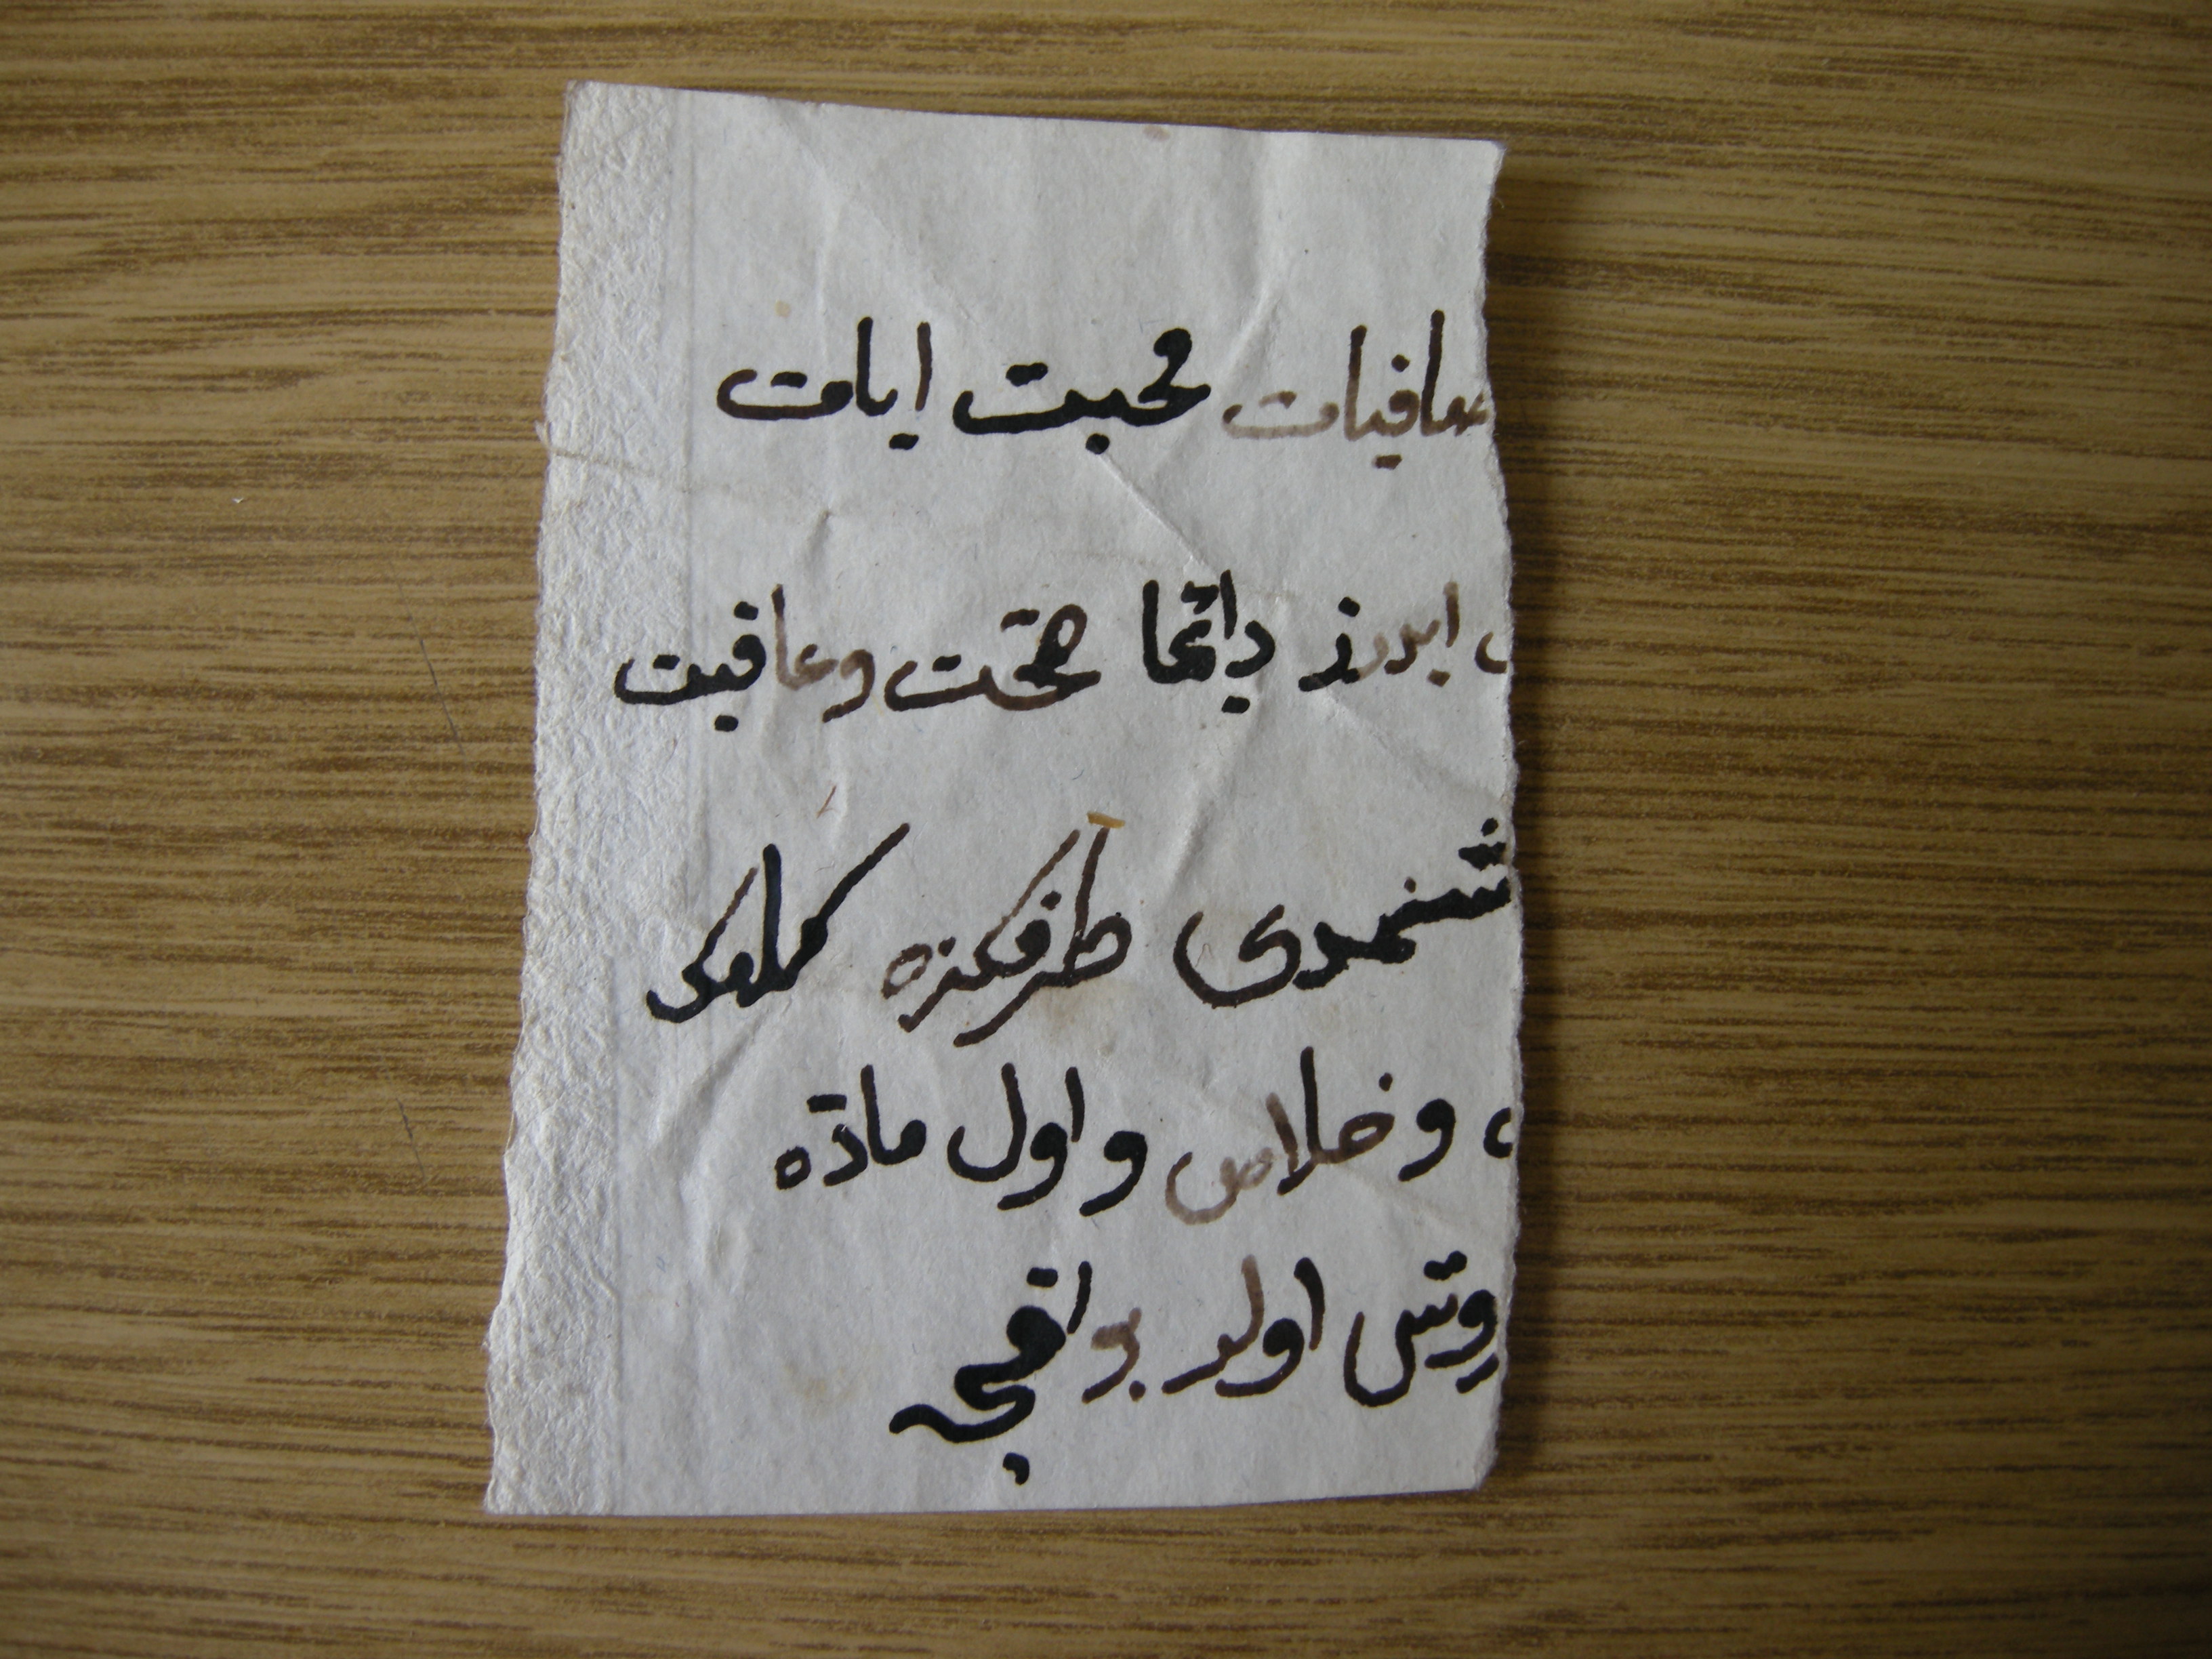 صافيات محبت ايات
ايدرز دائما صحت وعافيت
شنمدى طرفكزه كلمك
وخلاص واول مادّه
اولد بو اقچه